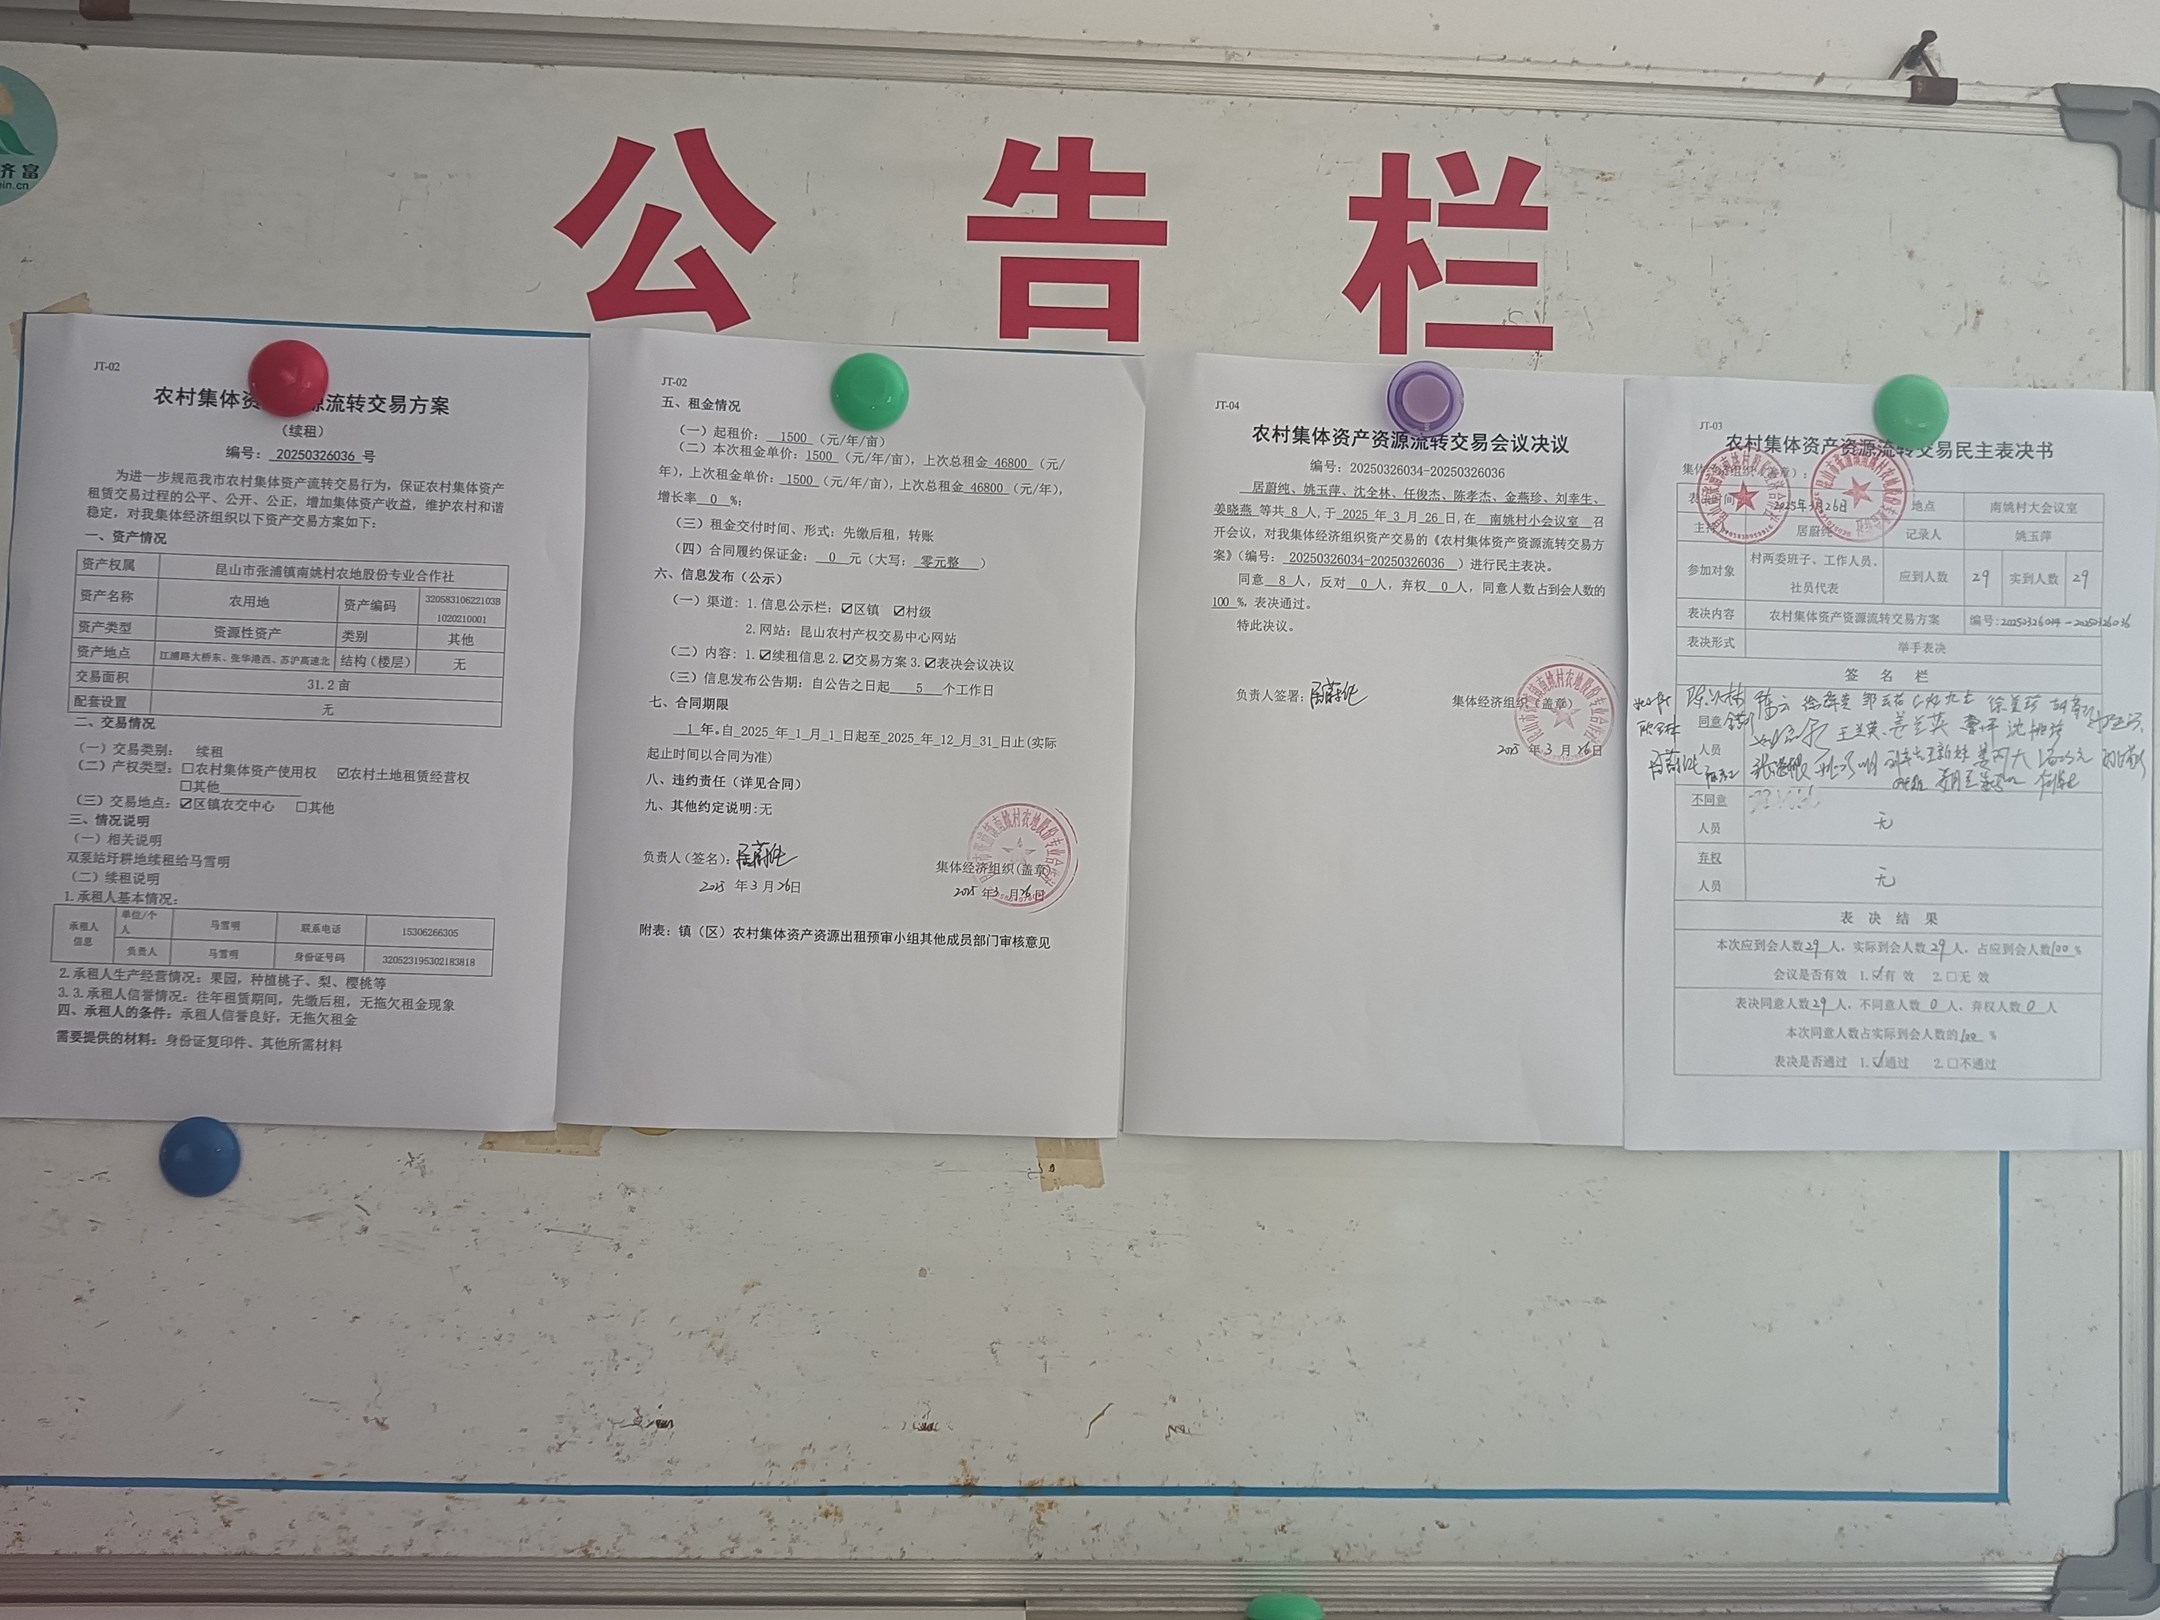 济富
ein.cn
公告栏
JT-02
农村集体资 源流转交易方案
(续租)
编号: 20250326036 号
为进一步规范我市农村集体资产流转交易行为，保证农村集体资产
租赁交易过程的公平、公开、公正，增加集体资产收益，维护农村和谐
稳定，对我集体经济组织以下资产交易方案如下：
一、资产情况
资产权属 昆山市张浦镇南姚村农地股份专业合作社
资产名称 农用地 资产编码 32058310622103B1020210001
资产类型 资源性资产 类别 其他
资产地点 江浦路大桥东、张华港西、苏沪高速北 结构(楼层) 无
交易面积 31.2 亩
配套设置 无
二、交易情况
(一)交易类别： 续租
(二)产权类型：□农村集体资产使用权 ☑农村土地租赁经营权
□其他
(三)交易地点：☑区镇农交中心 □其他
三、情况说明
(一)相关说明
双泵站圩耕地续租给马雪明
(二)续租说明
1.承租人基本情况：
承租人信息 单位/个人 马雪明 联系电话 15306266305
负责人 马雪明 身份证号码 320523195302183818
2.承租人生产经营情况：果园，种植桃子、梨、樱桃等
3.3.承租人信誉情况：往年租赁期间，先缴后租，无拖欠租金现象
四、承租人的条件：承租人信誉良好，无拖欠租金
需要提供的材料：身份证复印件、其他所需材料
JT-02
五、租金情况
(一)起租价： 1500 (元/年/亩)
(二)本次租金单价：1500 (元/年/亩)，上次总租金 46800 (元/
年)，上次租金单价： 1500 (元/年/亩)，上次总租金 46800 (元/年)，
增长率 0 %；
(三)租金交付时间、形式：先缴后租，转账
(四)合同履约保证金： 0 元(大写： 零元整 )
六、信息发布(公示)
(一)渠道：1.信息公示栏：☑区镇 ☑村级
2.网站：昆山农村产权交易中心网站
(二)内容：1.☑续租信息 2.☑交易方案 3.☑表决会议决议
(三)信息发布公告期：自公告之日起 5 个工作日
七、合同期限
1 年。自 2025 年 1 月 1 日起至 2025 年 12 月 31 日止(实际
起止时间以合同为准)
八、违约责任(详见合同)
九、其他约定说明：无
负责人(签名)：居蔚纯
2025 年 3 月 26 日
集体经济组织(盖章)
2025 年 3 月 26 日
附表：镇（区）农村集体资产资源出租预审小组其他成员部门审核意见
JT-04
农村集体资产资源流转交易会议决议
编号：20250326034-20250326036
居蔚纯、姚玉萍、沈全林、任俊杰、陈孝杰、金燕珍、刘幸生、
姜晓燕 等共 8 人，于 2025 年 3 月 26 日，在 南姚村小会议室 召
开会议，对我集体经济组织资产交易的《农村集体资产资源流转交易方
案》（编号： 20250326034-20250326036 ）进行民主表决。
同意 8 人，反对 0 人，弃权 0 人，同意人数占到会人数的
100 %，表决通过。
特此决议。
负责人签署：居蔚纯
集体经济组织（盖章）
2025 年 3 月 26 日
JT-03
农村集体资产资源流转交易民主表决书
集体经济组织（盖章）：
表决时间 2025年3月26日 地点 南姚村大会议室
主持人 居蔚纯 记录人 姚玉萍
参加对象 村两委班子、工作人员、社员代表 应到人数 29 实到人数 29
表决内容 农村集体资产资源流转交易方案 编号：20250326034-20250326036
表决形式 举手表决
签 名 栏
同意人员
不同意人员 无
弃权人员 无
表 决 结 果
本次应到会人数 29 人，实际到会人数 29 人，占应到会人数 100 %
会议是否有效 1.☑有 效 2.□无 效
表决同意人数 29 人，不同意人数 0 人，弃权人数 0 人
本次同意人数占实际到会人数的 100 %
表决是否通过 1.☑通过 2.□不通过